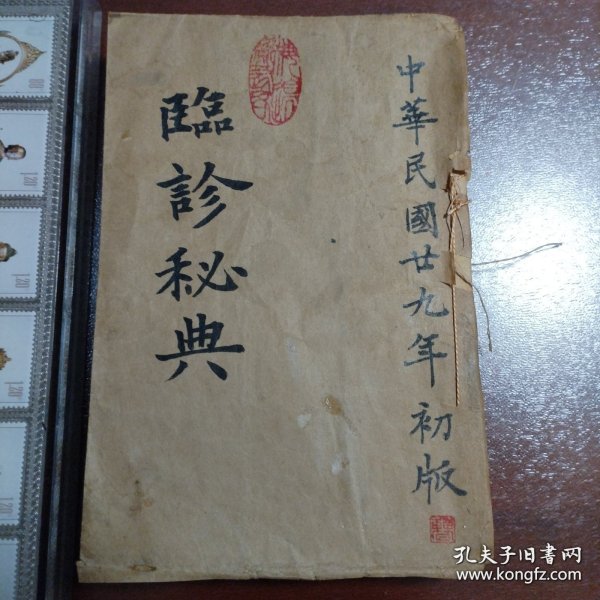 中華民國廿九年初版
臨診秘典
孔夫子旧书网
www.kongfz.com